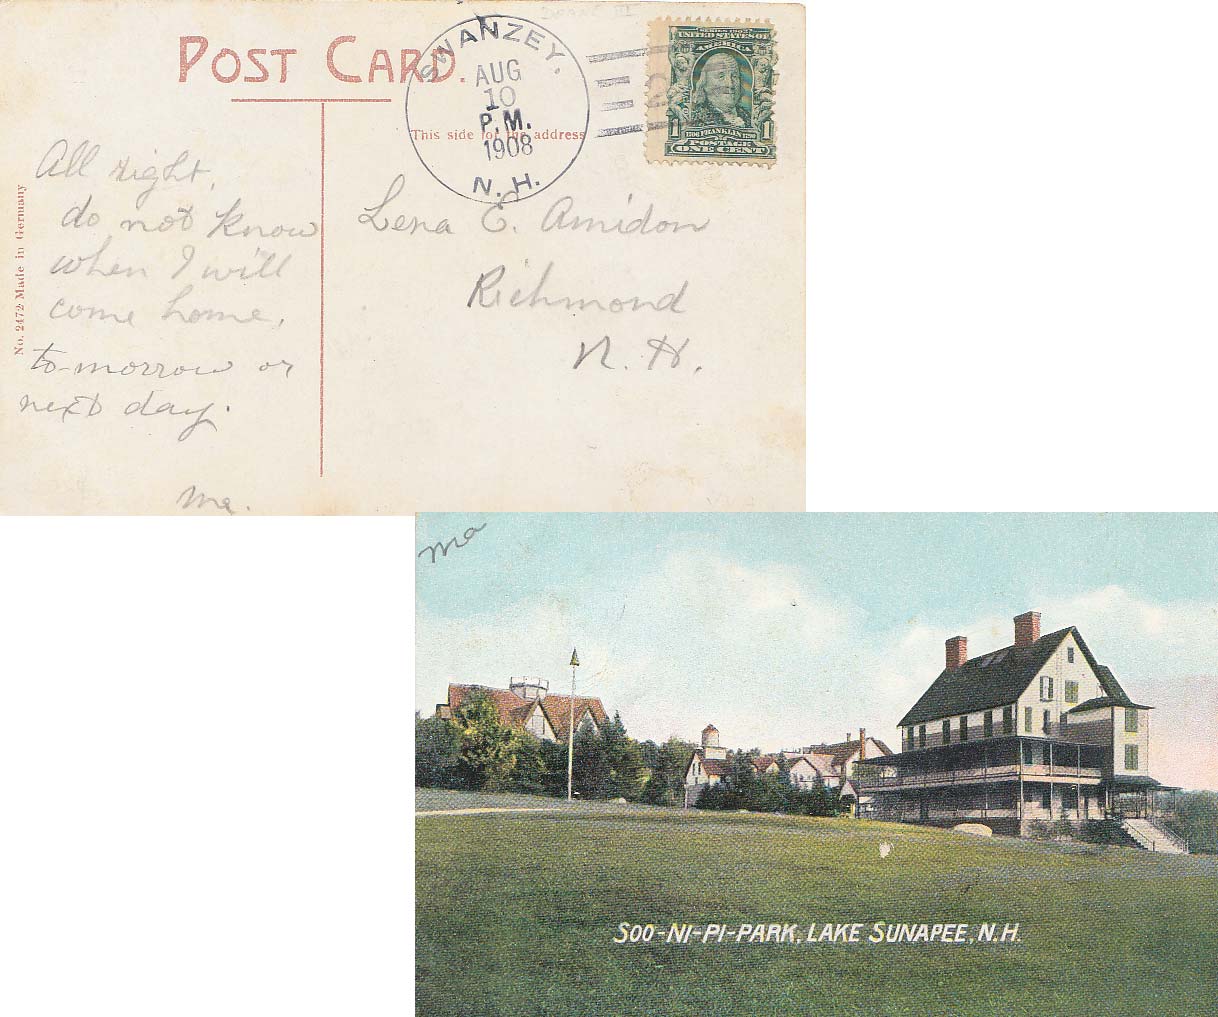 POST CARD.
SWANZEY.
AUG
10
P.M.
1908
N.H.
SERIES 1902
UNITED STATES OF
AMERICA
1706 FRANKLIN 1790
POSTAGE
1 ONE CENT 1
This side for the address
No. 2472 Made in Germany
All right,
do not know
when I will
come home,
to-morrow or
next day.
Ma.
Lena E. Amidon
Richmond
N. H.
Ma
SOO-NI-PI-PARK, LAKE SUNAPEE, N.H.